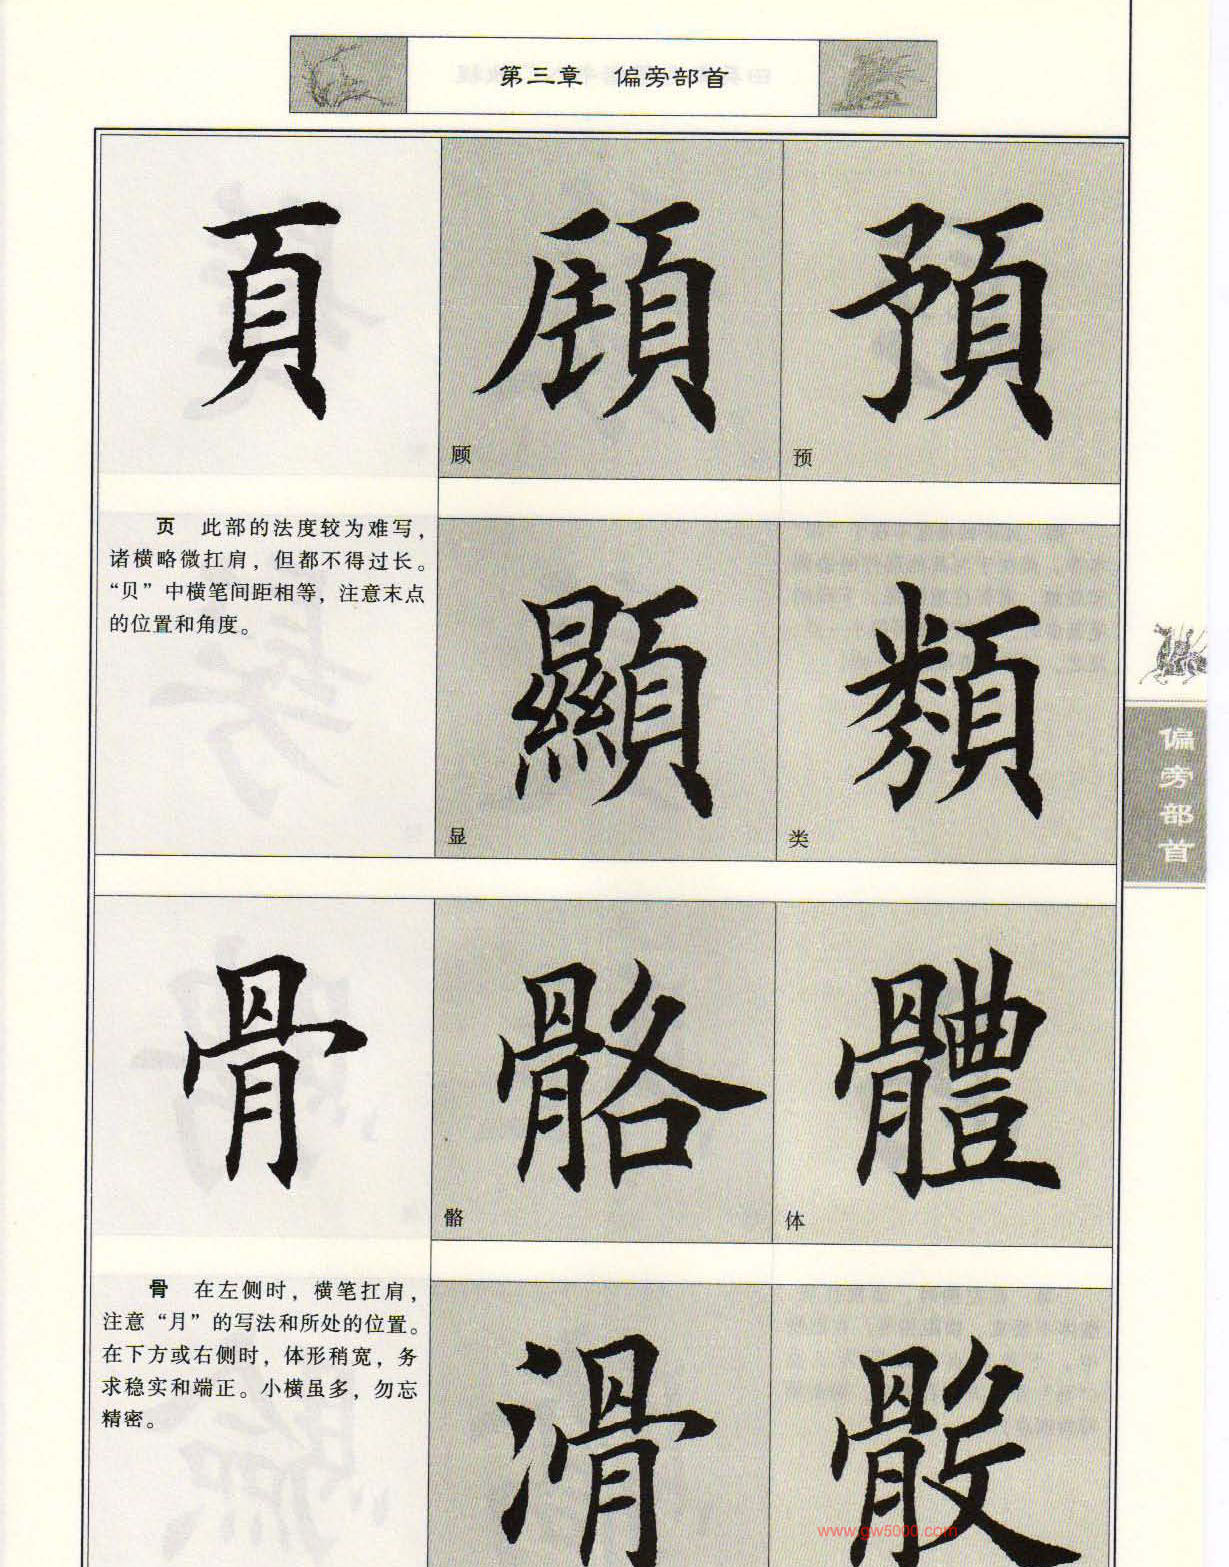 第三章 偏旁部首
頁
顾
预
页 此部的法度较为难写，
诸横略微扛肩，但都不得过长。
“贝”中横笔间距相等，注意末点
的位置和角度。
顯
显
類
类
偏旁部首
骨
骼
骼
體
体
骨 在左侧时，横笔扛肩，
注意“月”的写法和所处的位置。
在下方或右侧时，体形稍宽，务
求稳实和端正。小横虽多，勿忘
精密。
滑
www.gw5000.com